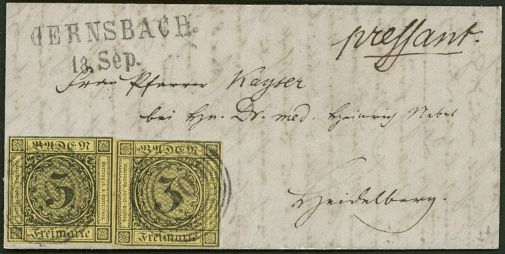 GERNSBACH.
18 Sep.
pressant.
Frau Pfarrer Kayser
bei Hn. Dr. med. Heinrich Nebel
Heidelberg.
BADEN BADEN
3 3
Freimarke Freimarke